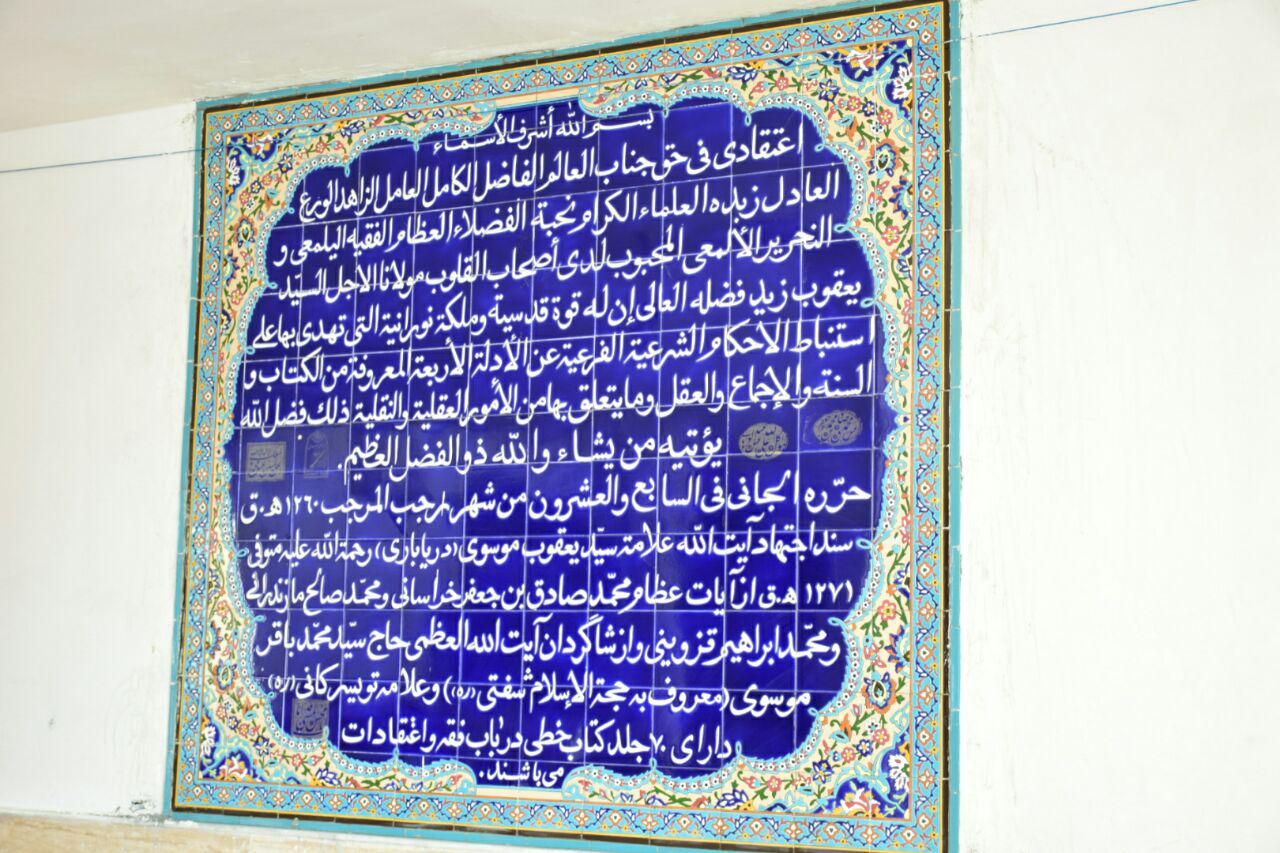 بسم الله أشرف الأسماء
اعتقادی فی حق جناب العالم الفاضل الکامل العامل الزاهد الورع
العادل زبده العلماء الکرام نخبة الفضلاء العظام الفقیه الیلمعی و
النحریر الألمعی المحبوب لدی أصحاب القلوب مولانا الاجل السیّد
یعقوب زید فضله العالی إن له قوة قدسیة وملکة نورانیة التی تهدی بها علی
استنباط الأحکام الشرعیة الفرعیة عن الأدلة الأربعة المعروفة من الکتاب و
السنة والإجماع والعقل وما یتعلق بها من الأمور العقلیة والنقلیة ذلك فضل الله
یؤتیه من یشاء والله ذو الفضل العظیم.
حرّره الجانی فی السابع والعشرون من شهر رجب المرجب ۱۲٦۰ ه‍.ق
سند اجتهاد آیت الله علامة سیّد یعقوب موسوی (دریاباری) رحمة الله علیه متوفی
۱۲۷۱ ه‍.ق از آیات عظام محمّد صادق بن جعفر خراسانی و محمّد صالح مازندرانی
و محمّد ابراهیم قزوینی و از شاگردان آیت الله العظمی حاج سیّد محمّد باقر
موسوی (معروف به حجة الإسلام شفتی (ره)) و علامه تویسرکانی (ره)
دارای ۷۰ جلد کتاب خطی در باب فقه و اعتقادات
می باشند.